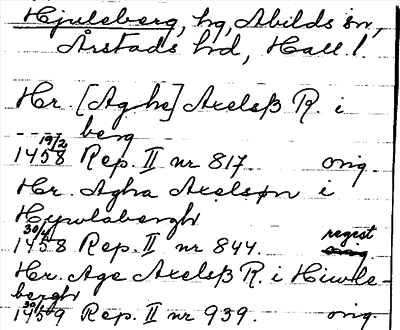 Hjuleberg, hg, Abilds sn,
Årstads hd, Hall.
Hr. [Aghe] Axelsß R. i
---- berg
19/2 1458 Rep. II nr 817. orig.
Hr. Agha Axelsøn i
Hywlabergh
30/4 1458 Rep. II nr 844. regest
Hr. Age Axelsß R. i Hiwle-
bergh
1459 Rep. II nr 939. orig.